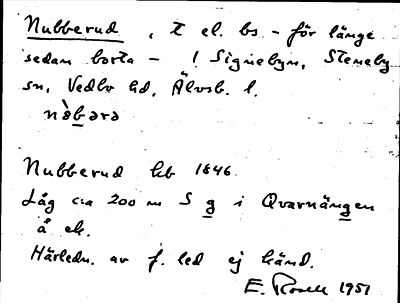 Nubberud, t el. bs. - för länge
sedan borta - ! Signebyn, Steneby
sn, Vedbo hd, Älvsb. l.
nòbərə
Nubberud hb 1846.
Låg ca 200 m S g i Qvarnängen
å ek.
Härledn. av f. led ej känd.
E. Rosell 1951